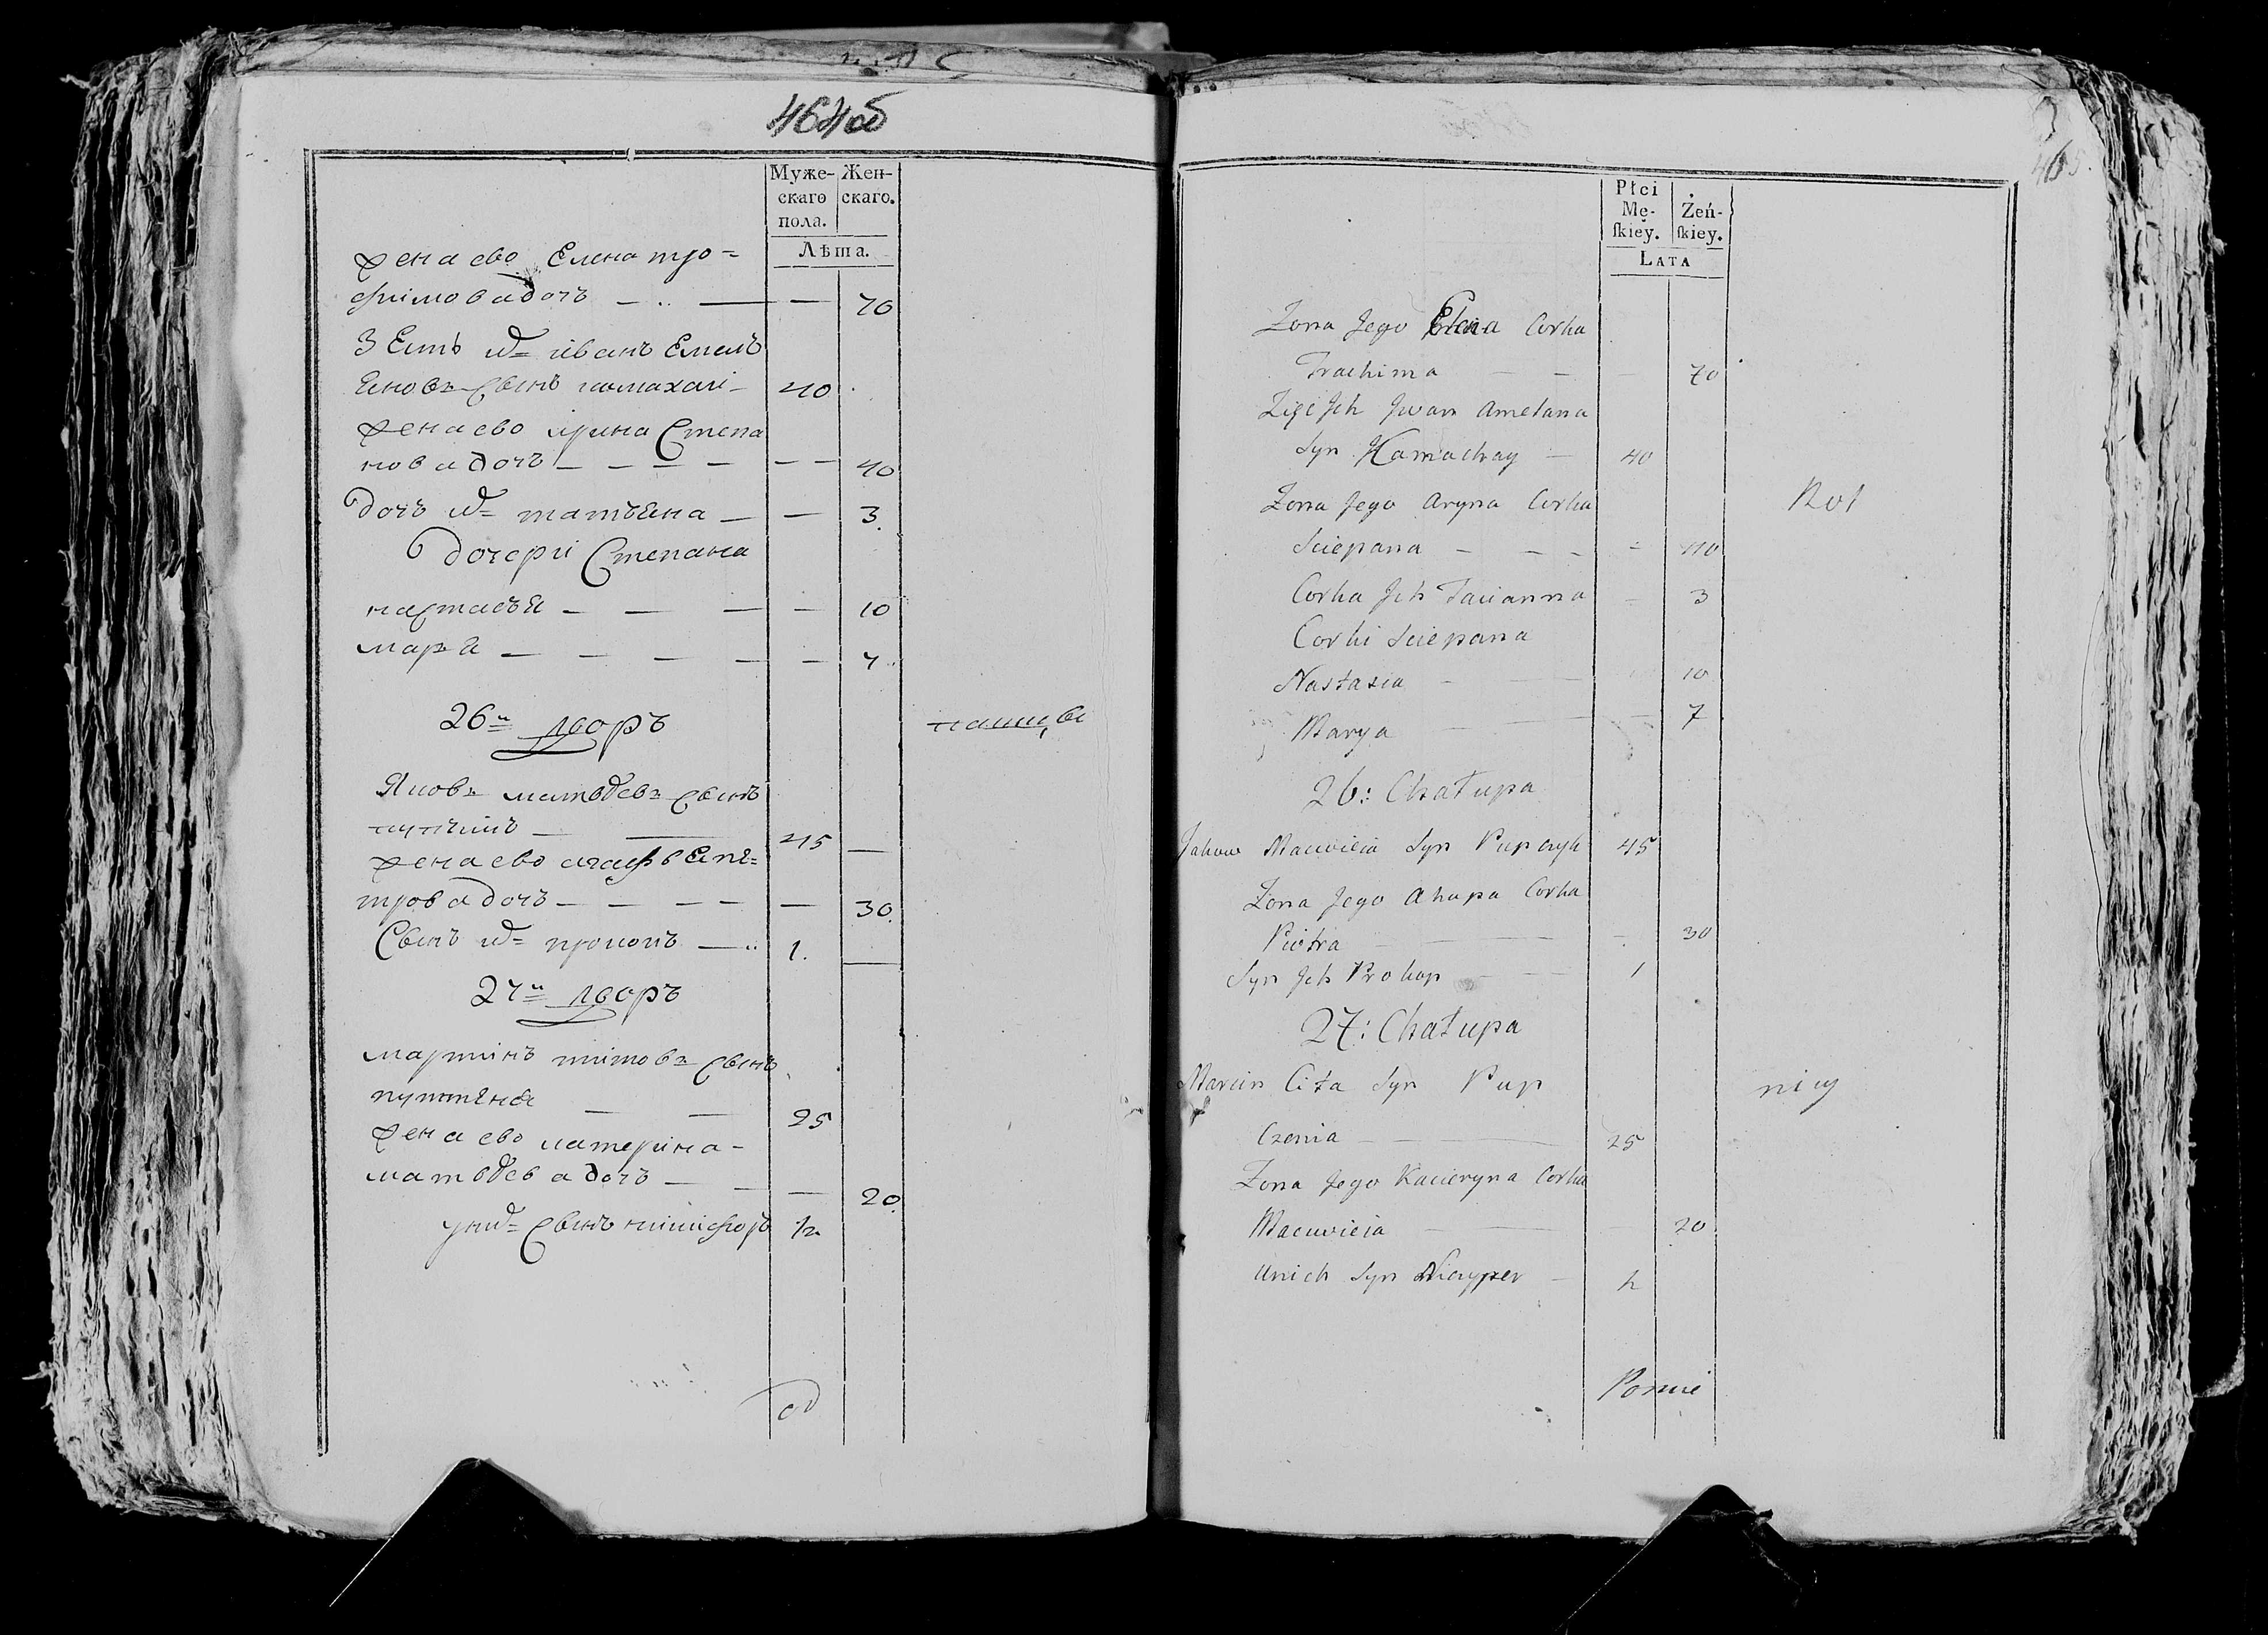 464об
Муже- Жен-
скаго скаго.
пола.
Лѣта.
жена ево Елена тро-
фимова дочь — — — 70
Зеть их Иванъ Емель
Еновъ сынъ 40
жена ево Арина Степа
нова дочь — — — — — — 40
дочь их татьена — — 3.
Дочери Степана
настасья — — — — 10
маря — — — — — 7
26й дворъ
пашцы
Яковъ матвеевъ сынъ
45 —
жена ево агафьЕ пе-
трова дочь — — — — — 30.
Сынъ их прокопъ — 1.
27й дворъ
мартинъ титовъ сынъ
— — 25
жена ево катерина
матвеева дочь — — — 20.
у них сынъ никифоръ ½
465.
Płci Żeń-
Mę- ſkiey.
ſkiey.
Lata
Zona Jego Elena Corka
Trachima — — — 70
Zięć Jch Jwan Amelana
Syn Hamachay — 40
Zona Jego Aryna Corka
Rol
Sciepana — — — - 40
Corka Jch Tacianna - 3
Corki Sciepana
Nastasia — — 10
Marya — — 7
26: Chałupa
Jakow Macwieia Syn Pupczyk 45
Zona Jego Ahapa Corka
Piotra — — 30
Syn Jch Prokop — 1
27: Chałupa
Marcin Cita Syn Pup
nicy
Czenia — — 25
Zona Jego Kacieryna Corka
Macwieia — — 20
Unich Syn Niczyper — ½